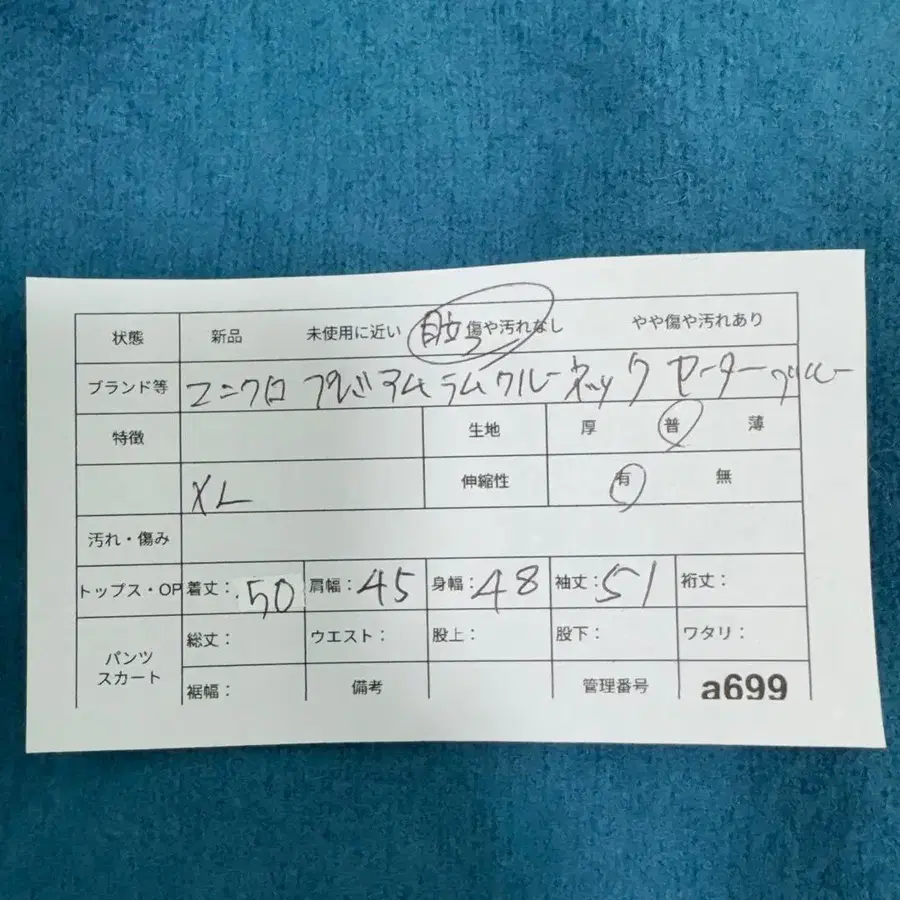 状態 新品 未使用に近い 目立つ傷や汚れなし やや傷や汚れあり
ブランド等 ユニクロ プレミアム ラム クルーネック セーター
特徴 生地 厚 普 薄
XL 伸縮性 有 無
汚れ・傷み
トップス・OP 着丈: 50 肩幅: 45 身幅: 48 袖丈: 51 裄丈:
パンツ スカート 総丈: ウエスト: 股上: 股下: ワタリ:
裾幅: 備考 管理番号 a699